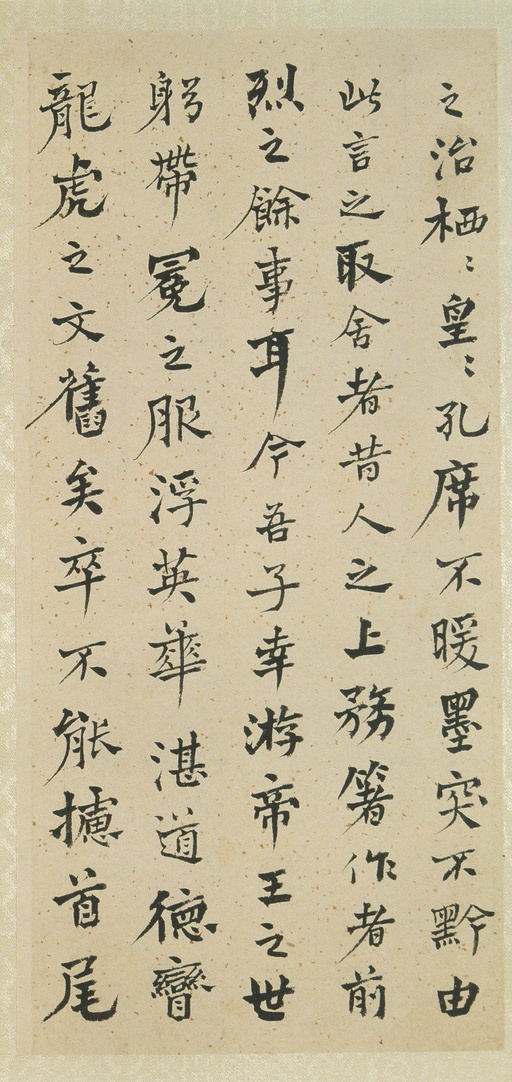 之治栖〻皇〻孔席不暖墨突不黔由
此言之取舍者昔人之上務箸作者前
烈之餘事耳今吾子幸游帝王之世
躬帶冕之服浮英華湛道德矕
龍虎之文舊矣卒不能攄首尾